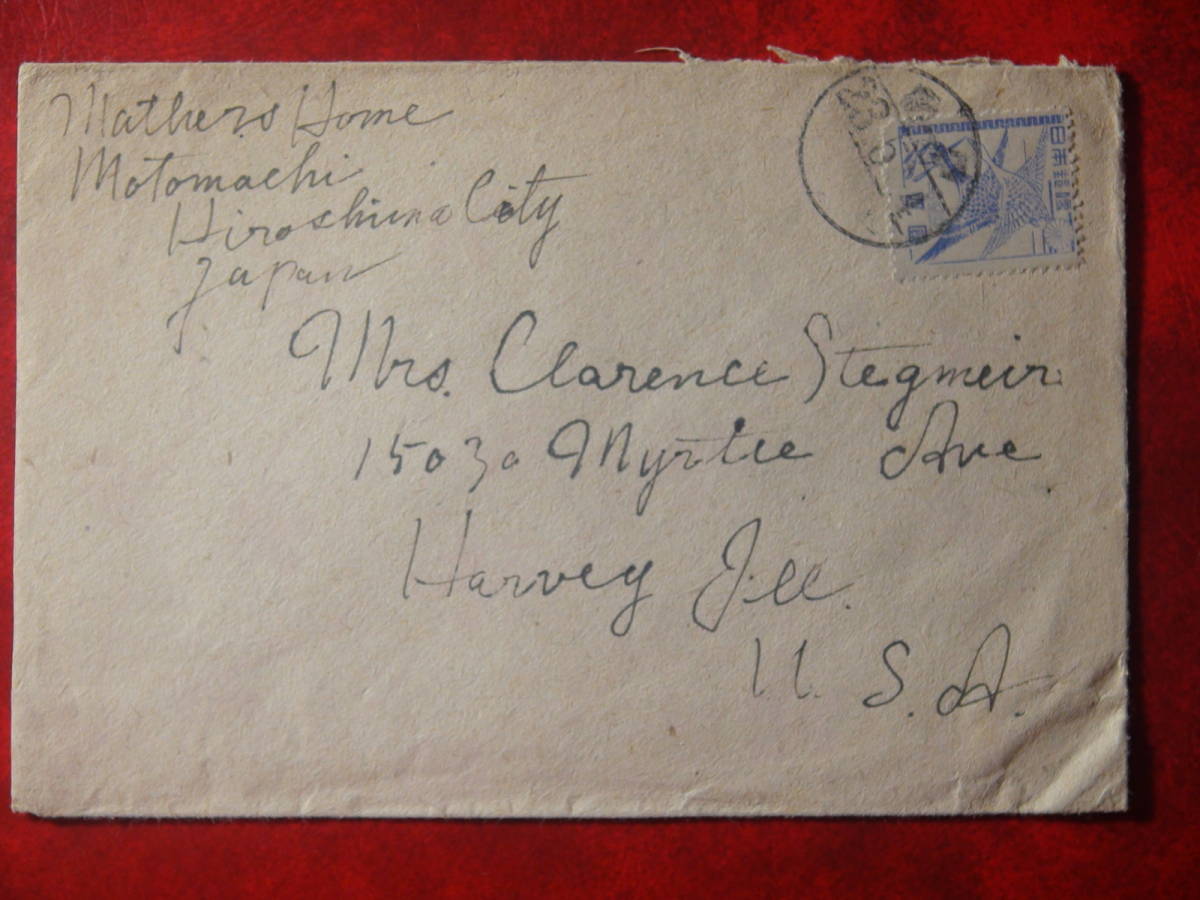 Mathers Home
Motomachi
Hiroshima City
Japan
日本郵便
Mrs. Clarence Stegmeir
15030 Myrtle Ave
Harvey Ill.
U. S. A.